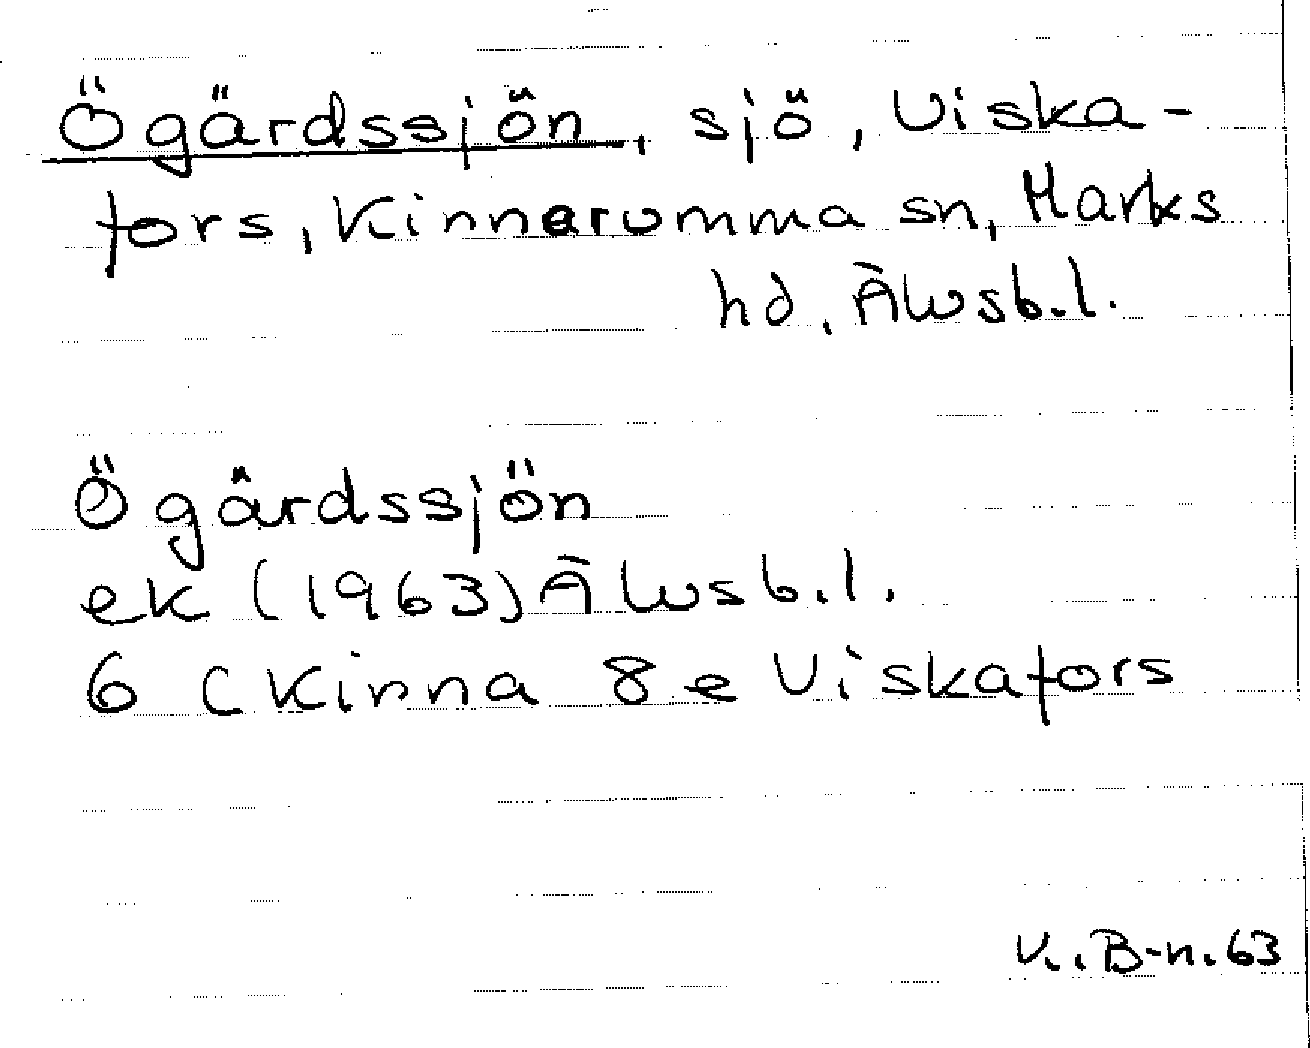 Ögärdssjön, sjö, Viska-
fors, Kinnarumma sn, Marks
hd, Älvsb.l.
Ögärdssjön
ek (1963) Älvsb.l.
6 C Kinna 8 e Viskafors
V. B-n. 63